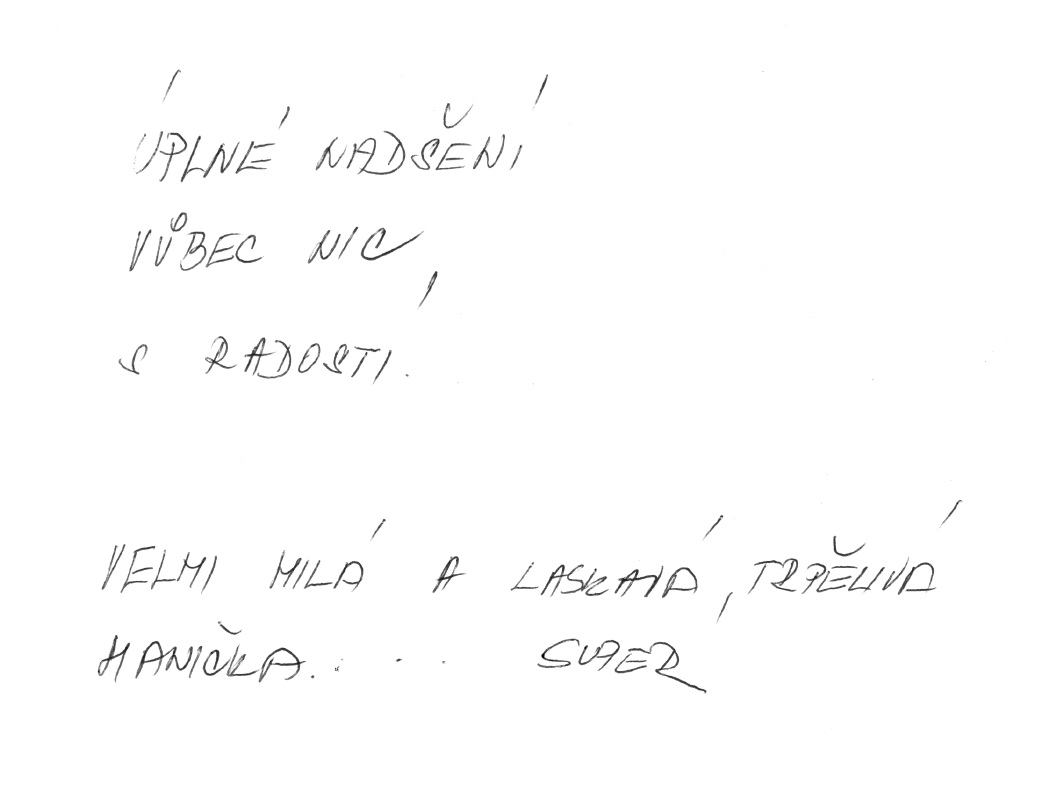 ÚPLNÉ NADŠENÍ
VŮBEC NIC
S RADOSTÍ.
VELMI MILÁ A LASKAVÁ, TRPĚLIVÁ
HANIČKA.... SUPER